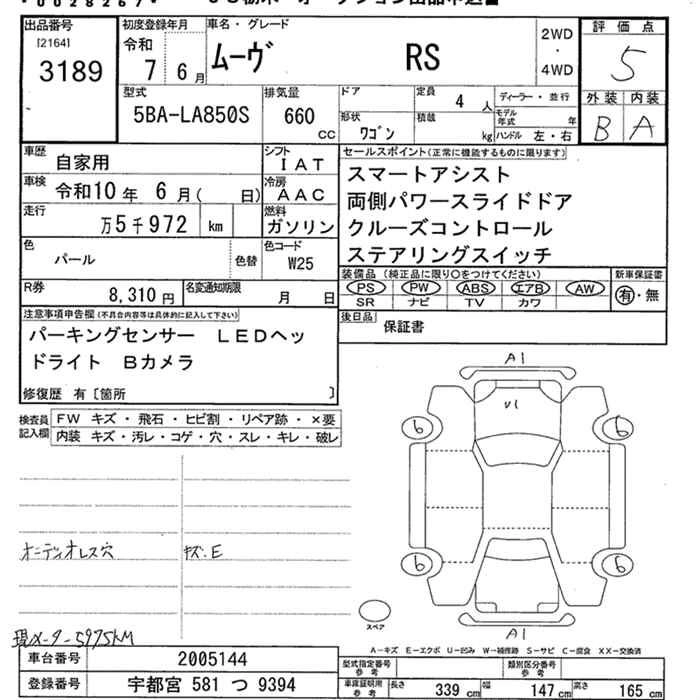 *0028267*
出品番号
[2164]
3189
初度登録年月
令和
7 6月
車名・グレード
ムーヴ RS
2WD
・
4WD
評価点
5
外装 内装
B A
型式
5BA-LA850S
排気量
660
CC
ドア
定員
4 人
ディーラー・並行
モデル年式 年
形状
ワゴン
積載
kg
ハンドル 左・右
車歴
自家用
シフト
IAT
車検
令和10年 6月( 日)
冷房
AAC
走行
万5千972 km
燃料
ガソリン
色
パール
色替
色コード
W25
R券
8,310円
名変通知期限
月 日
セールスポイント(正常に機能するものに限ります)
スマートアシスト
両側パワースライドドア
クルーズコントロール
ステアリングスイッチ
装備品 (純正品に限り○をつけてください)
PS PW ABS エアB AW
SR ナビ TV カワ
新車保証書
有・無
後日品
保証書
注意事項申告欄(不具合内容等は具体的に記入して下さい)
パーキングセンサー LEDヘッ
ドライト Bカメラ
修復歴 有〔箇所 〕
検査員
記入欄
FW キズ・飛石・ヒビ割・リペア跡・×要
内装 キズ・汚レ・コゲ・穴・スレ・キレ・破レ
オーディオレス穴
キズ.E
現メーター5975KM
A1
U1
6
6
6
6
A1
スペア
A-キズ E-エクボ U-凹み W-補修跡 S-サビ C-腐食 XX-交換済
車台番号
2005144
登録番号
宇都宮 581 つ 9394
型式指定番号
参考
類別区分番号
参考
車庫証明用
参考
長さ 339 cm
幅 147 cm
高さ 165 cm